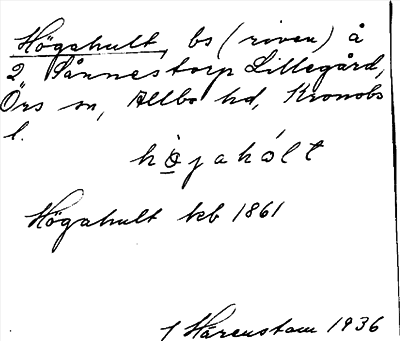 Högahult, bs (riven) å
2 Sånnestorp Lillegård,
Örs sn, Allbo hd, Kronobs
l.
hö̱jahólt
Högahult kkb 1861
J Härenstam 1936